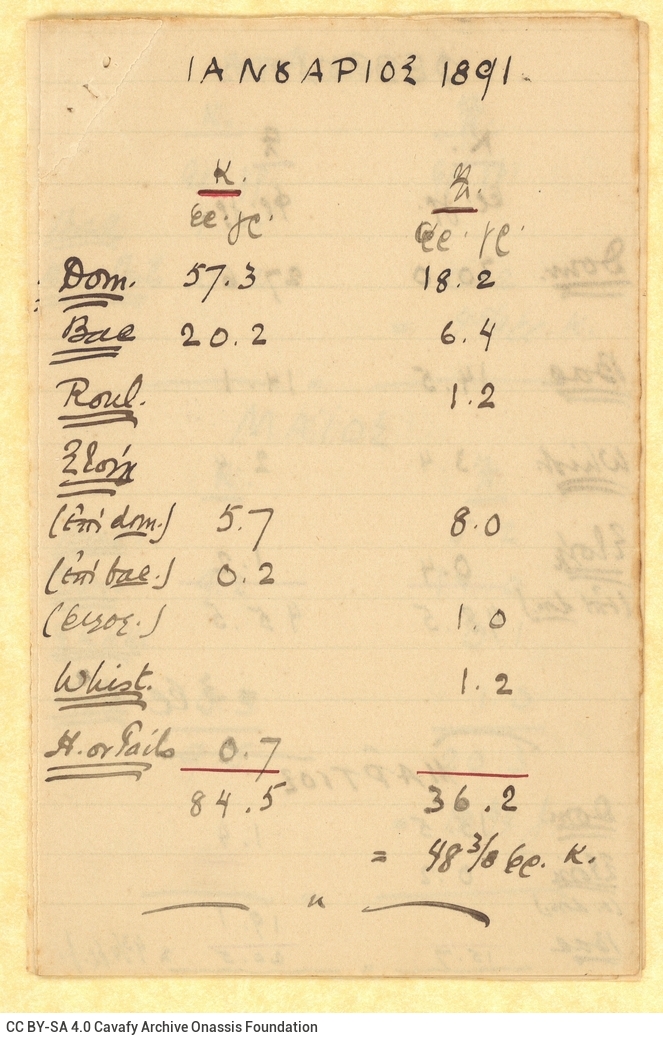 ΙΑΝȣΑΡΙΟΣ 1891.
Κ. Ζ.
φρ. γρ. φρ. γρ.
Dom. 57.3 18.2
Bac 20.2 6.4
Roul. 1.2
Στοίχ
(ἐπί dom.) 5.7 8.0
(ἐπί bac.) 0.2
1.0
Whist. 1.2
H. or Tails 0.7
84.5 36.2
= 48 3/8 φρ. Κ.
"
CC BY-SA 4.0 Cavafy Archive Onassis Foundation